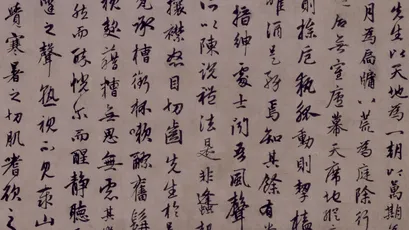 先生以天地為一朝以萬期
月為扃牖八荒為庭除行
居無室廬幕天席地縱
則操卮執觚動則挈榼
唯酒是務焉知其餘有
搢紳處士聞吾風聲
所以陳說禮法是非蜂
攘襟怒目切齒先生於
承槽銜杯漱醪奮髯
枕麴藉糟無思無慮其
然而醉恍尓而醒靜聽
之聲熟視不見泰山
寒暑之切肌嗜欲之